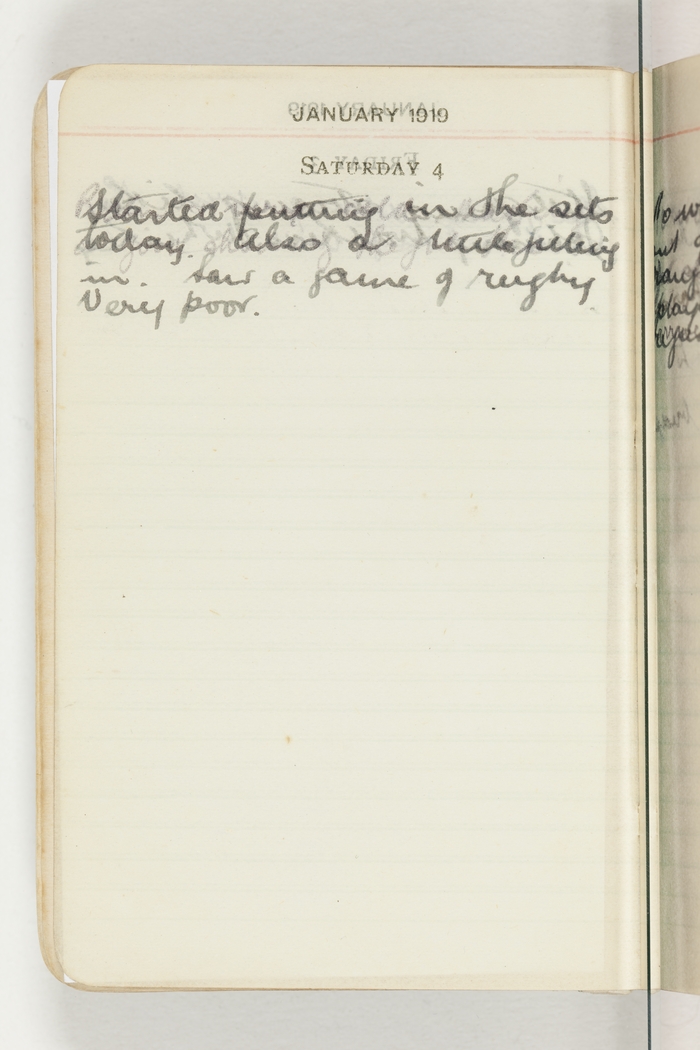 JANUARY 1919
SATURDAY 4
Started putting in the sets
today. Also a little filling
in. Saw a game of rugby
Very poor.